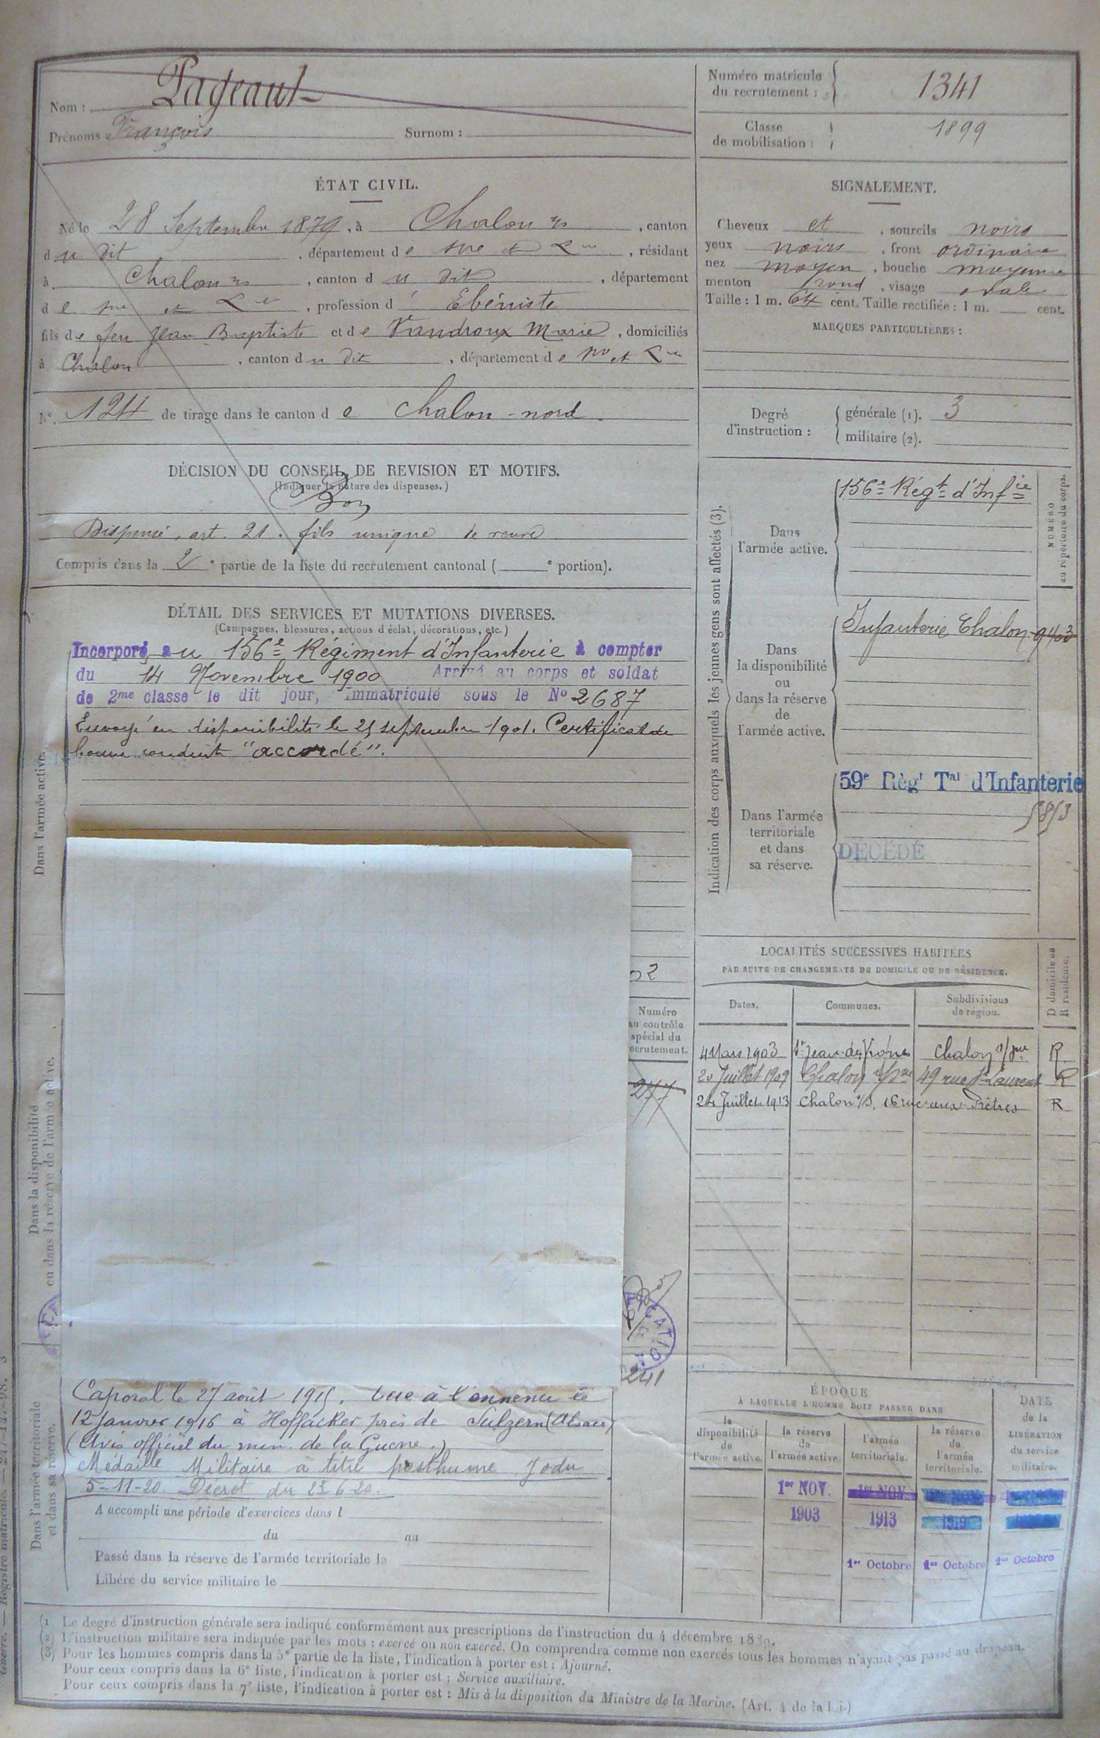 Nom : Pageault
Prénoms : François Surnom :
Numéro matricule du recrutement : 1341
Classe de mobilisation : 1899
ÉTAT CIVIL.
Né le 28 Septembre 1879, à Chalon s/s, canton
du dit, département de Sne et Lre, résidant
à Chalon s/s, canton du dit, département
de Sne et Lre, profession d'Ébéniste
fils de feu Jean Baptiste et de Vandroux Marie, domiciliés
à Chalon, canton du dit, département de Sne et Lre
N° 124 de tirage dans le canton de Chalon-nord.
SIGNALEMENT.
Cheveux et, sourcils noirs
yeux noirs, front ordinaire
nez moyen, bouche moyenne
menton rond, visage ovale
Taille : 1 m. 64 cent. Taille rectifiée : 1 m. cent.
MARQUES PARTICULIÈRES :
Degré d'instruction : générale (1). 3
militaire (2).
DÉCISION DU CONSEIL DE REVISION ET MOTIFS.
(Indiquer la nature des dispenses.)
Bon
Dispensé, art. 21. fils unique de veuve
Compris dans la 2e partie de la liste du recrutement cantonal ( e portion).
DÉTAIL DES SERVICES ET MUTATIONS DIVERSES.
(Campagnes, blessures, actions d'éclat, décorations, etc.)
Incorporé au 156e Régiment d'Infanterie à compter
du 14 Novembre 1900 Arrivé au corps et soldat
de 2me classe le dit jour, immatriculé sous le N° 2687
Envoyé en disponibilité le 21 septembre 1901. Certificat de
bonne conduite "accordé".
Dans l'armée active.
Dans la disponibilité
ou dans la réserve de l'armée active.
Dans l'armée territoriale
et dans sa réserve.
02
Numéro
au contrôle
spécial du
recrutement.
247
241
Caporal le 27 août 1915. tué à l'ennemi le
12 Janvier 1916 à Hoffacker près de Sulzern (Alsace)
(Avis officiel du min. de la Guerre.)
Médaille Militaire à titre posthume J.o du
5-11-20. Décret du 23.6.20.
A accompli une période d'exercices dans l
du au
Passé dans la réserve de l'armée territoriale le
Libéré du service militaire le
Indication des corps auxquels les jeunes gens sont affectés (3).
NUMÉRO
au répertoire du corps.
Dans
l'armée active.
156e Régt d'Infie
Dans
la disponibilité
ou
dans la réserve
de
l'armée active.
Infanterie Chalon
Dans l'armée
territoriale
et dans
sa réserve.
59e Régt Tal d'Infanterie
5853
DÉCÉDÉ
LOCALITÉS SUCCESSIVES HABITÉES
PAR SUITE DE CHANGEMENTS DE DOMICILE OU DE RÉSIDENCE.
D domicile ou
R résidence.
Dates. Communes. Subdivisions de région.
4 Mars 1903 St Jean-des-Vignes Chalon s/Sne R
20 Juillet 1909 Chalon s/Sne 49 rue St Laurent R
24 Juillet 1913 Chalon s/S. 16 rue aux Prêtres R
ÉPOQUE
A LAQUELLE L'HOMME DOIT PASSER DANS
DATE
de la
LIBÉRATION
du service
militaire.
la disponibilité de l'armée active.
la réserve de l'armée active.
l'armée territoriale.
la réserve de l'armée territoriale.
1er NOV. 1er NOV.
1903 1913 1919
1er Octobre 1er Octobre 1er Octobre
(1) Le degré d'instruction générale sera indiqué conformément aux prescriptions de l'instruction du 4 décembre 1889.
(2) L'instruction militaire sera indiquée par les mots : exercé ou non exercé. On comprendra comme non exercés tous les hommes n'ayant pas passé au drapeau.
(3) Pour les hommes compris dans la 5e partie de la liste, l'indication à porter est : Ajourné.
Pour ceux compris dans la 6e liste, l'indication à porter est : Service auxiliaire.
Pour ceux compris dans la 7e liste, l'indication à porter est : Mis à la disposition du Ministre de la Marine. (Art. 4 de la Loi)